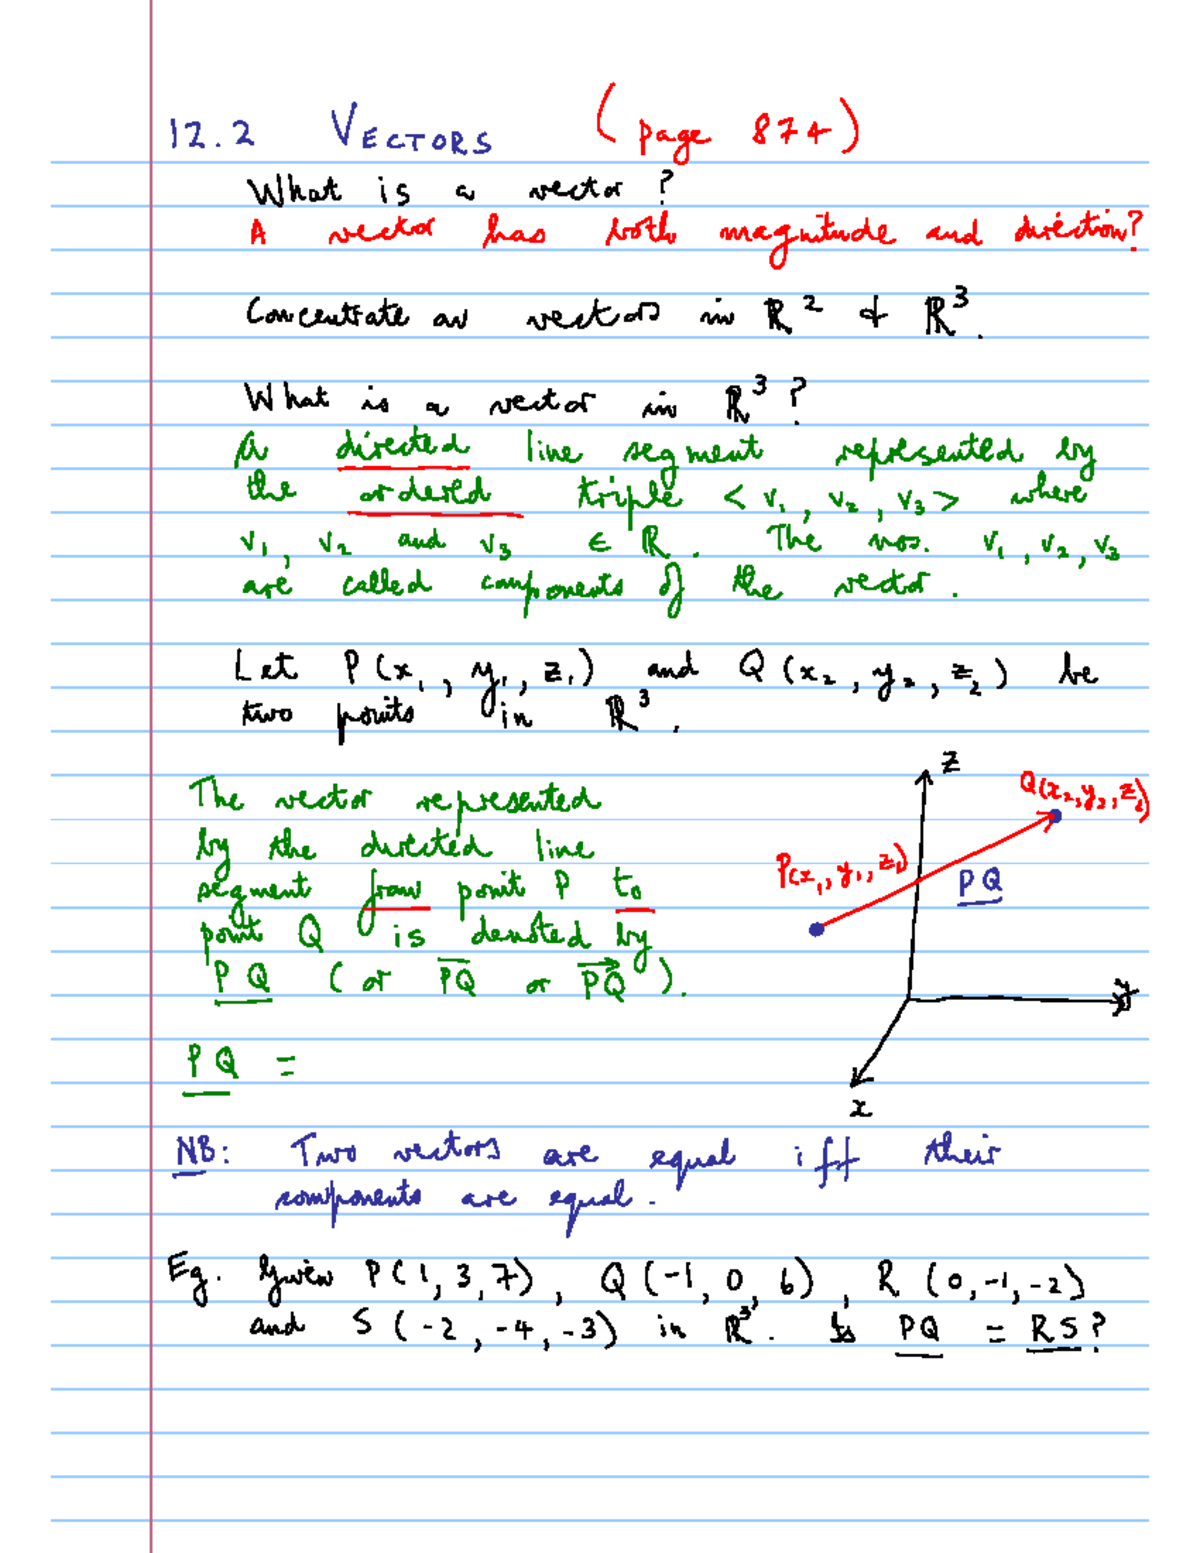 12.2 VECTORS (page 874)
What is a vector?
A vector has both magnitude and direction?
Concentrate on vectors in ℝ² & ℝ³.
What is a vector in ℝ³?
A directed line segment represented by
the ordered triple < v₁, v₂, v₃ > where
v₁, v₂ and v₃ ∈ ℝ. The nos. v₁, v₂, v₃
are called components of the vector.
Let P(x₁, y₁, z₁) and Q(x₂, y₂, z₂) be
two points in ℝ³.
The vector represented
by the directed line
segment from point P to
point Q is denoted by
PQ (or PQ or PQ).
PQ =
z
Q(x₂, y₂, z₂)
P(x₁, y₁, z₁)
PQ
y
x
NB: Two vectors are equal iff their
components are equal.
Eg. Given P(1, 3, 7), Q(-1, 0, 6), R(0, -1, -2)
and S(-2, -4, -3) in ℝ³. Is PQ = RS?